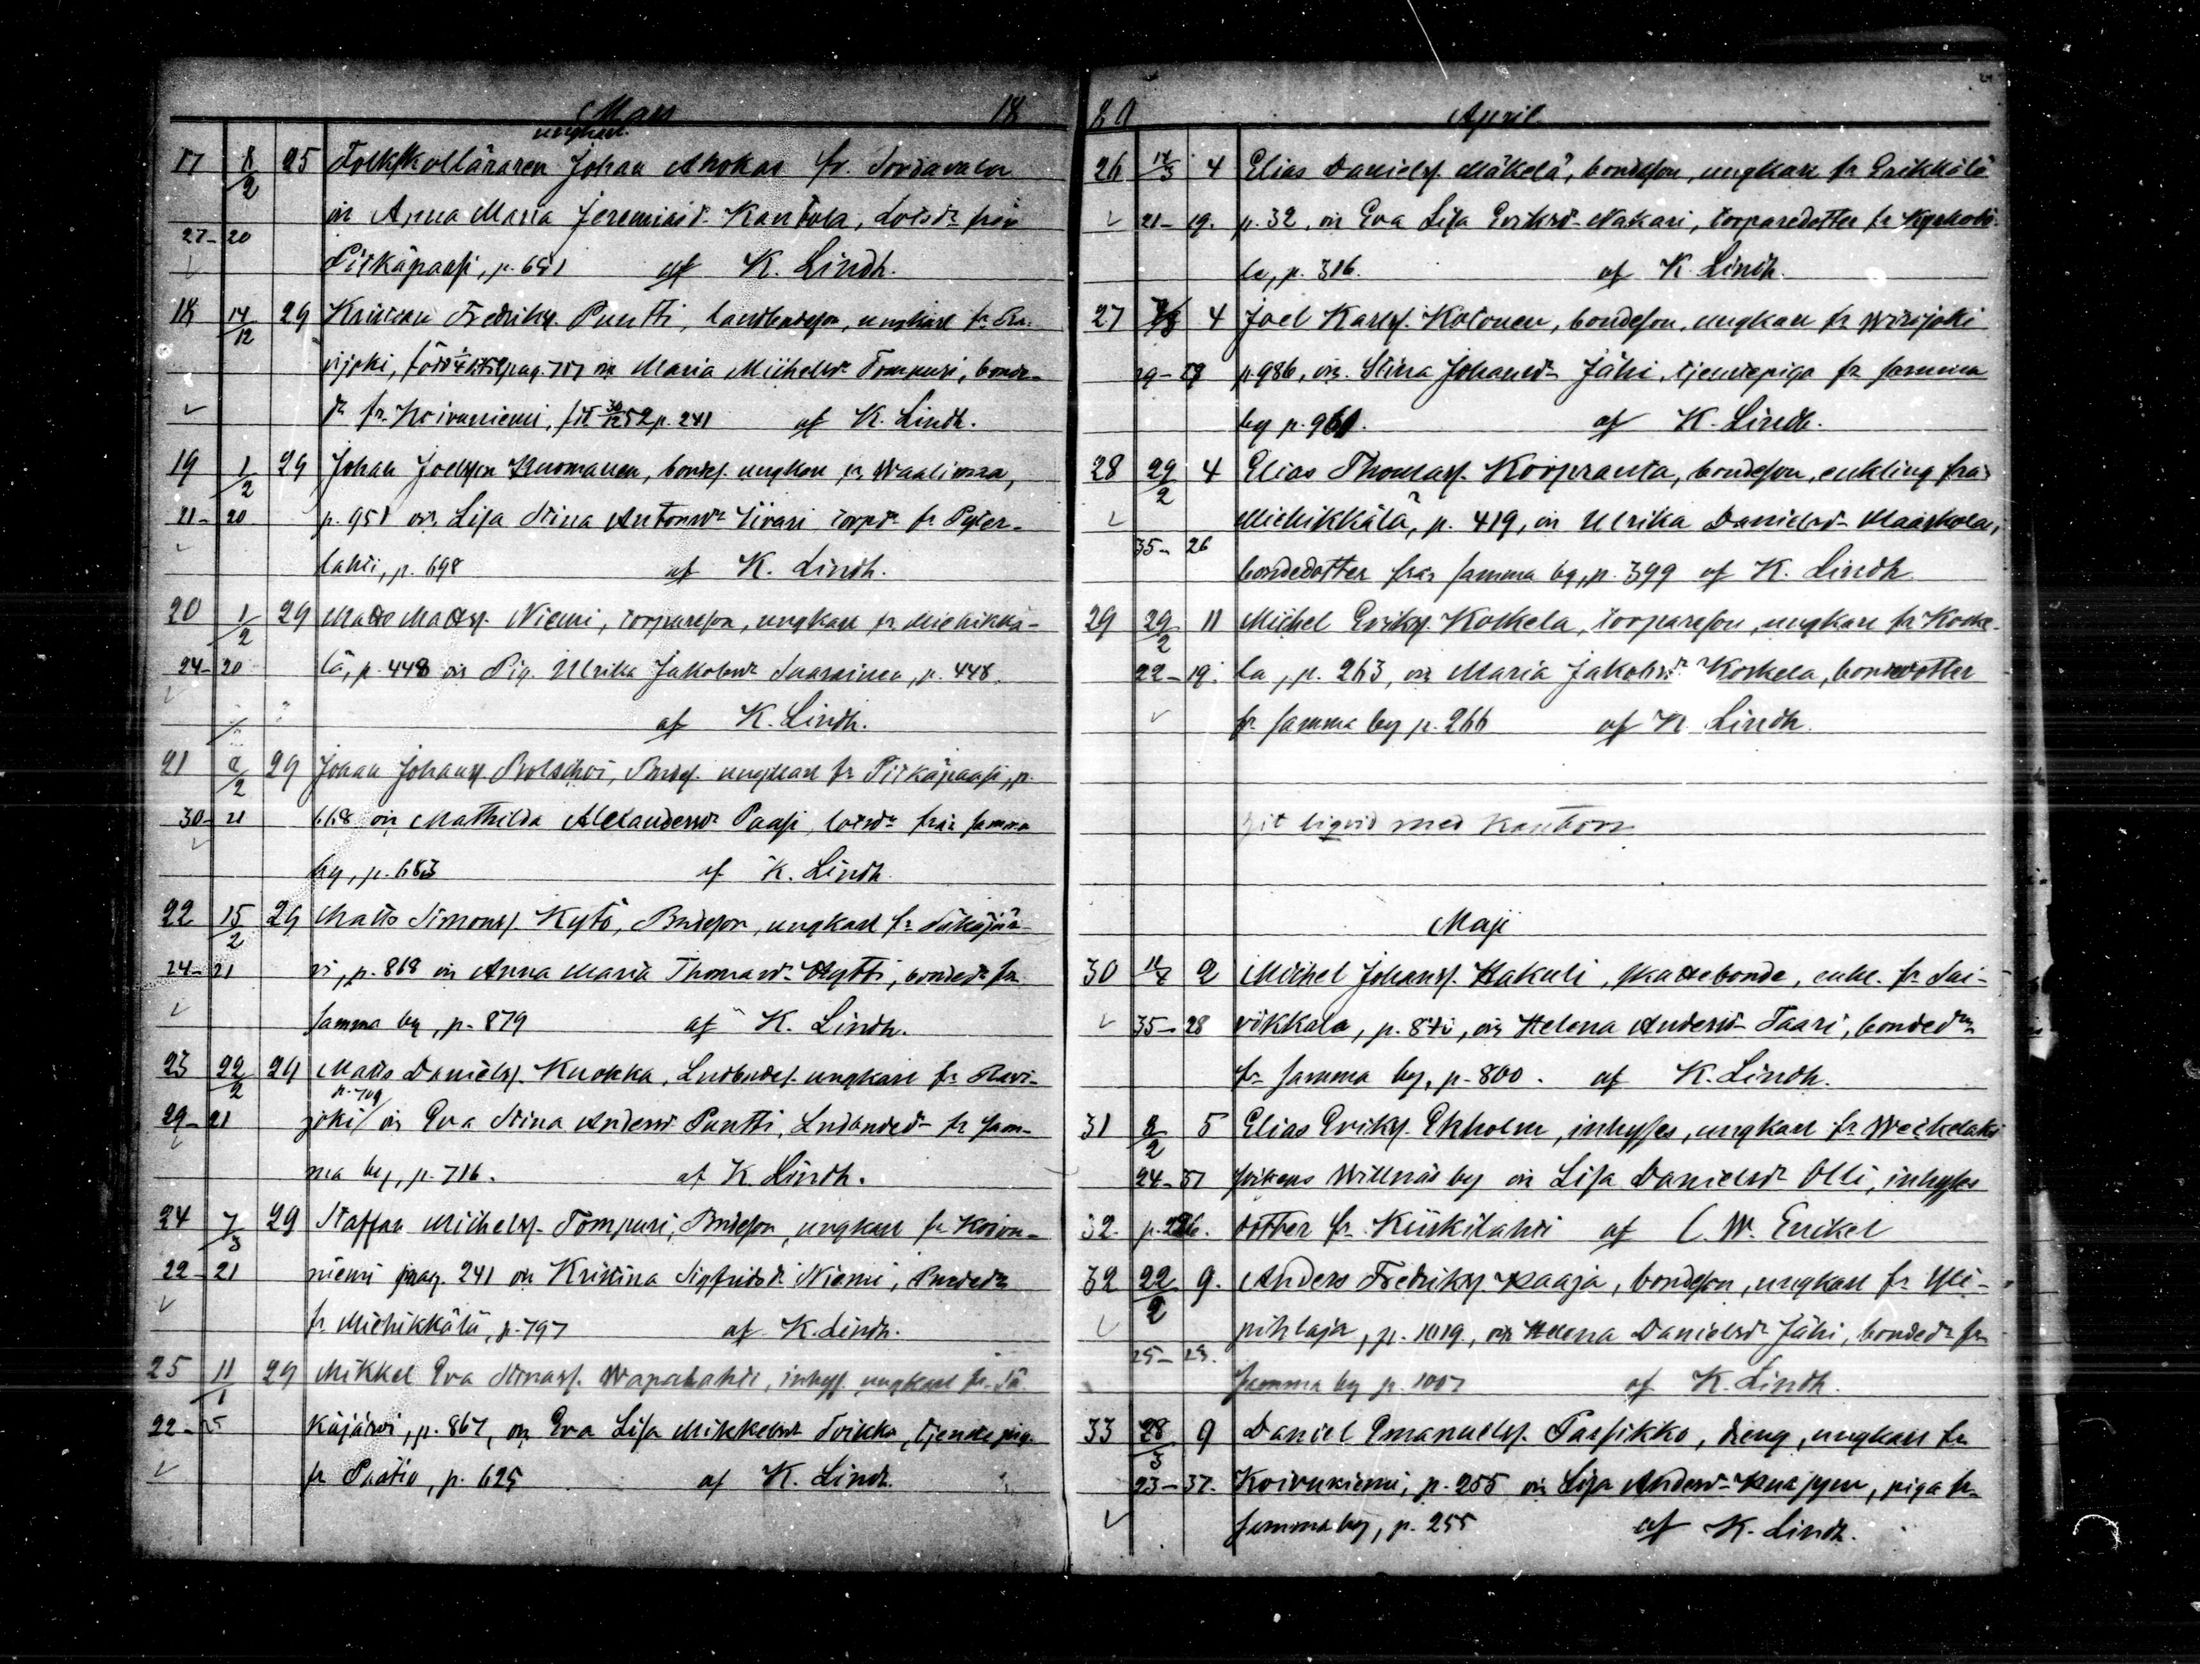 Mars 18
ungkarl.
17 8/2 25 Folkskolläraren Johan Ahokas fr. Sordavala
27-20 oc Anna Maria Jeremiasdr Kantola, Lotsdr från
Pitkäpaasi, p. 651 af K. Lindh.
18 14/12 29 Kristian Fredriksf. Puntti, landbudeson, ungkarl fr. Ra-
vijoki, pag. 717 oc Maria Michelsdr Tompuri, bonde-
dr fr. Koivuniemi, född 30/12 52 p. 241 af K. Lindh.
19 1/2 29 Johan Joelsson Kuomanen, bondes. ungkarl fr Waalimaa,
21-20 p. 951 oc Lisa Stina Antonsdr Iivari torpdr fr Pyter-
lahti, p. 698 af K. Lindh.
20 1/2 29 Matts Mattsf. Niemi, torpareson, ungkarl fr Miehikkä-
24-20 lä, p. 448 oc Pig. Ulrika Jakobsdr Saarainen, p. 448.
af K. Lindh.
21 8/2 29 Johan Johansf. Bolschoi, Bndes. ungkarl fr Pitkäpaasi, p.
30-21 668 oc Mathilda Alexandersdr Paasi, lotsdr från samma
by, p. 683 af K. Lindh
22 15/2 29 Matts Simonsf. Kytö, Bndeson, ungkarl fr Säkäjär-
24-21 vi, p. 868 oc Anna Maria Thomasdr Hytti, bondedr fr
samma by, p. 879 af K. Lindh.
23 22/2 29 Matts Danielsf. Kuokka, Lndbudes. ungkarl fr Ravi-
p. 709
29-21 joki/ oc Eva Stina Andersdr Puntti, Lndbudedr fr sam-
ma by, p. 716. af K. Lindh.
24 7/3 29 Staffan Michelsf. Tompuri, Bndeson, ungkarl fr Koivu-
22-21 niemi pag. 241 oc Kristina Sigfridsdr Niemi, Bndedr
fr Miehikkälä, p. 797 af K. Lindh.
25 11/1 29 Mikkel Eva Stinasf. Wapalahti, inhys. ungkarl fr. Sä-
22-5 käjärvi, p. 867, oc Eva Lisa Mikkelsdr Toikka, tjenstepig.
fr Paatio, p. 625 af K. Lindh.
80 April
26 14/3 4 Elias Danielsf. Mäkelä, bondeson, ungkarl fr Erikkälä
21-19. p. 32, oc Eva Lisa Eriksdr Nakari, torparedotter fr Kyrkoby-
le, p. 316. af K. Lindh.
27 4 Joel Karlsf. Kotonen, bondeson, ungkarl fr Wirojoki
29-29 p 986, oc. Stina Johansdr Jähi, tjenstepiga fr samma
by p. 961. af K. Lindh.
28 29/2 4 Elias Thomasf. Koopranta, bondeson, enkling från
Miehikkälä, p. 419, oc Ulrika Danielsdr Maaskola,
35-26
bondedotter från samma by, p. 399 af K. Lindh
29 29/2 11 Michel Eriksf. Koskela, torpareson, ungkarl fr Koske-
22-19. la, p. 263, oc Maria Jakobsdr Koskela, bondedotter
fr samma by p. 266 af K. Lindh.
hit liqvid med Kantorn
Maji
30 2 Michel Johansf. Kakuli, skattebonde, enkl. fr Sai-
35-28 vikkala, p. oc Helena Andersdr Taari, bondedr
fr samma by, p. 800. af K. Lindh.
31 8/2 5 Elias Eriksf. Ekholm, inhyses, ungkarl fr Weckelaks
24-51 sockens Willnäs by oc Lisa Danielsdr Olli, inhyses
32. p. 226. dotter fr Kiiskilahti af C. W. Enckel
32 22/2 9. Anders Fredriksf. Raaja, bondeson, ungkarl fr Yli-
pihlaja, p. 1019, oc Helena Danielsdr Jähi, bondedr fr
25-23. samma by p. 1007 af K. Lindh.
33 28/3 9 Daniel Emanuelsf. Parsikko, dreng, ungkarl fr
23-37. Koivuniemi, p. 255 oc Lisa Andersdr piga fr
samma by, p. 255 af K. Lindh.